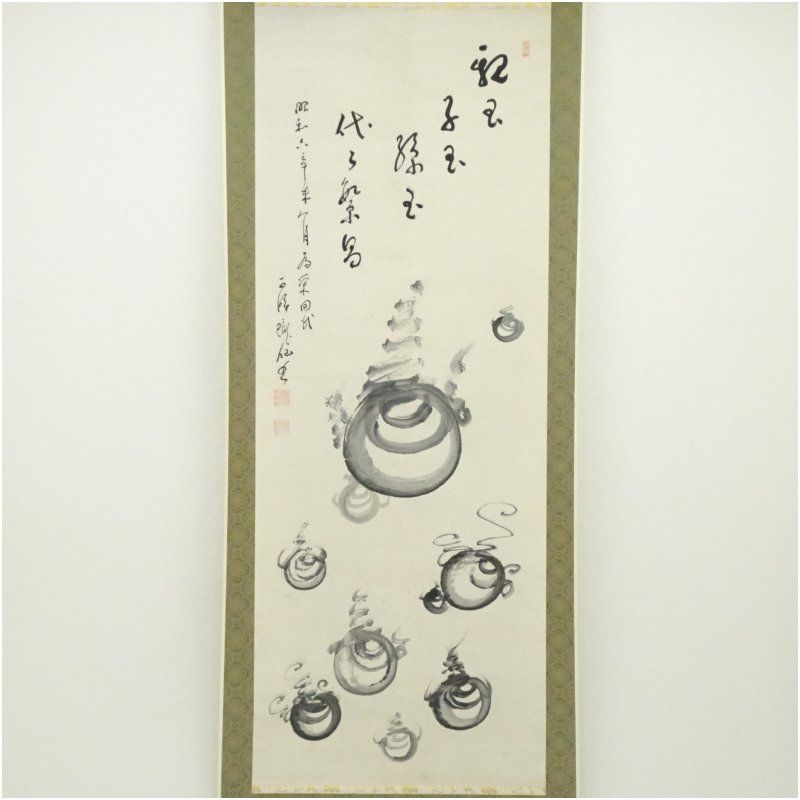 親玉
子玉
孫玉
代々繁昌
昭和六辛未八月為栄田氏